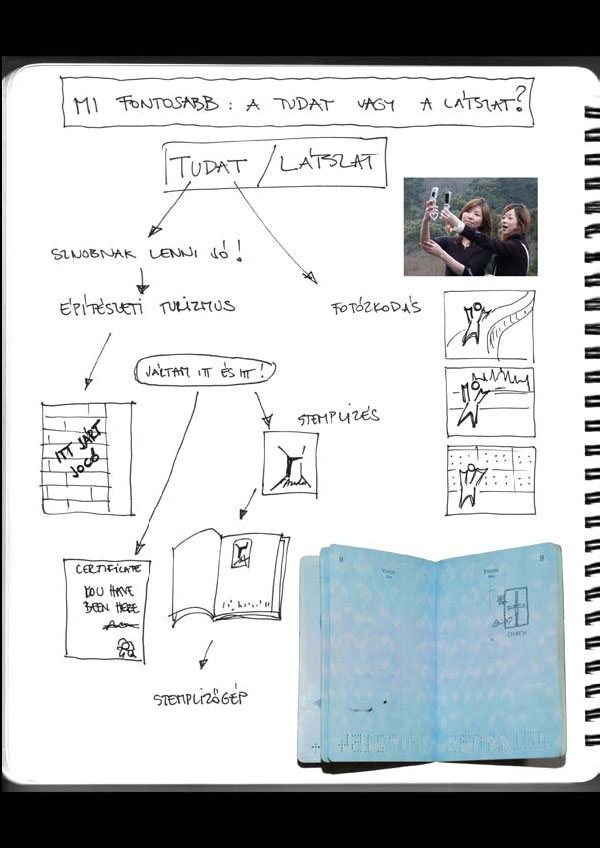 MI FONTOSABB: A TUDAT VAGY A LÁTSZAT?
TUDAT / LÁTSZAT
SZNOBNAK LENNI JÓ!
ÉPÍTÉSZETI TURIZMUS
FOTÓZKODÁS
JÁRTAM ITT ÉS ITT!
STEMPLIZÉS
ITT JÁRT
JOCÓ
CERTIFICATE
YOU HAVE
BEEN HERE
STEMPLIZŐGÉP
Visas
Visas
CHURCH